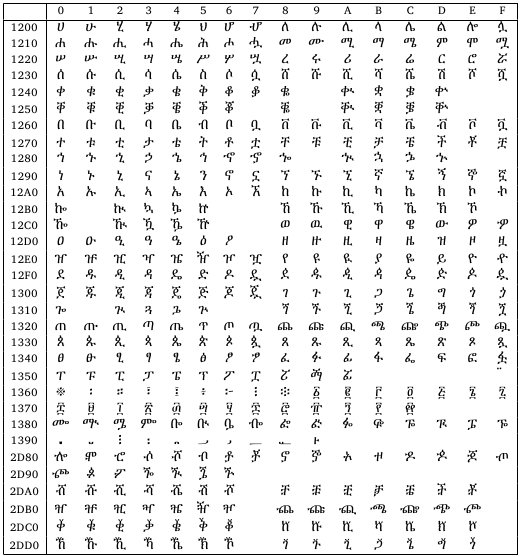 0 1 2 3 4 5 6 7 8 9 A B C D E F
1200 ሀ ሁ ሂ ሃ ሄ ህ ሆ ሇ ለ ሉ ሊ ላ ሌ ል ሎ ሏ
1210 ሐ ሑ ሒ ሓ ሔ ሕ ሖ ሗ መ ሙ ሚ ማ ሜ ም ሞ ሟ
1220 ሠ ሡ ሢ ሣ ሤ ሥ ሦ ሧ ረ ሩ ሪ ራ ሬ ር ሮ ሯ
1230 ሰ ሱ ሲ ሳ ሴ ስ ሶ ሷ ሸ ሹ ሺ ሻ ሼ ሽ ሾ ሿ
1240 ቀ ቁ ቂ ቃ ቄ ቅ ቆ ቇ ቈ ቊ ቋ ቌ ቍ
1250 ቐ ቑ ቒ ቓ ቔ ቕ ቖ ቘ ቚ ቛ ቜ ቝ
1260 በ ቡ ቢ ባ ቤ ብ ቦ ቧ ቨ ቩ ቪ ቫ ቬ ቭ ቮ ቯ
1270 ተ ቱ ቲ ታ ቴ ት ቶ ቷ ቸ ቹ ቺ ቻ ቼ ች ቾ ቿ
1280 ኀ ኁ ኂ ኃ ኄ ኅ ኆ ኇ ኈ ኊ ኋ ኌ ኍ
1290 ነ ኑ ኒ ና ኔ ን ኖ ኗ ኘ ኙ ኚ ኛ ኜ ኝ ኞ ኟ
12A0 አ ኡ ኢ ኣ ኤ እ ኦ ኧ ከ ኩ ኪ ካ ኬ ክ ኮ ኯ
12B0 ኰ ኲ ኳ ኴ ኵ ኸ ኹ ኺ ኻ ኼ ኽ ኾ
12C0 ዀ ዂ ዃ ዄ ዅ ወ ዉ ዊ ዋ ዌ ው ዎ ዏ
12D0 ዐ ዑ ዒ ዓ ዔ ዕ ዖ ዘ ዙ ዚ ዛ ዜ ዝ ዞ ዟ
12E0 ዠ ዡ ዢ ዣ ዤ ዥ ዦ ዧ የ ዩ ዪ ያ ዬ ይ ዮ ዯ
12F0 ደ ዱ ዲ ዳ ዴ ድ ዶ ዷ ዸ ዹ ዺ ዻ ዼ ዽ ዾ ዿ
1300 ጀ ጁ ጂ ጃ ጄ ጅ ጆ ጇ ገ ጉ ጊ ጋ ጌ ግ ጎ ጏ
1310 ጐ ጒ ጓ ጔ ጕ ጘ ጙ ጚ ጛ ጜ ጝ ጞ ጟ
1320 ጠ ጡ ጢ ጣ ጤ ጥ ጦ ጧ ጨ ጩ ጪ ጫ ጬ ጭ ጮ ጯ
1330 ጰ ጱ ጲ ጳ ጴ ጵ ጶ ጷ ጸ ጹ ጺ ጻ ጼ ጽ ጾ ጿ
1340 ፀ ፁ ፂ ፃ ፄ ፅ ፆ ፇ ፈ ፉ ፊ ፋ ፌ ፍ ፎ ፏ
1350 ፐ ፑ ፒ ፓ ፔ ፕ ፖ ፗ ፘ ፙ ፚ ፟
1360 ፠ ፡ ። ፣ ፤ ፥ ፦ ፧ ፨ ፩ ፪ ፫ ፬ ፭ ፮ ፯
1370 ፰ ፱ ፲ ፳ ፴ ፵ ፶ ፷ ፸ ፹ ፺ ፻ ፼
1380 ᎀ ᎁ ᎂ ᎃ ᎄ ᎅ ᎆ ᎇ ᎈ ᎉ ᎊ ᎋ ᎌ ᎍ ᎎ ᎏ
1390 ᎐ ᎑ ᎒ ᎓ ᎔ ᎕ ᎖ ᎗ ᎘ ᎙
2D80 ⶀ ⶁ ⶂ ⶃ ⶄ ⶅ ⶆ ⶇ ⶈ ⶉ ⶊ ⶋ ⶌ ⶍ ⶎ ⶏ
2D90 ⶐ ⶑ ⶒ ⶓ ⶔ ⶕ ⶖ
2DA0 ⶠ ⶡ ⶢ ⶣ ⶤ ⶥ ⶦ ⶨ ⶩ ⶪ ⶫ ⶬ ⶭ ⶮ
2DB0 ⶰ ⶱ ⶲ ⶳ ⶴ ⶵ ⶶ ⶸ ⶹ ⶺ ⶻ ⶼ ⶽ ⶾ
2DC0 ⷀ ⷁ ⷂ ⷃ ⷄ ⷅ ⷆ ⷈ ⷉ ⷊ ⷋ ⷌ ⷍ ⷎ
2DD0 ⷐ ⷑ ⷒ ⷓ ⷔ ⷕ ⷖ ⷘ ⷙ ⷚ ⷛ ⷜ ⷝ ⷞ